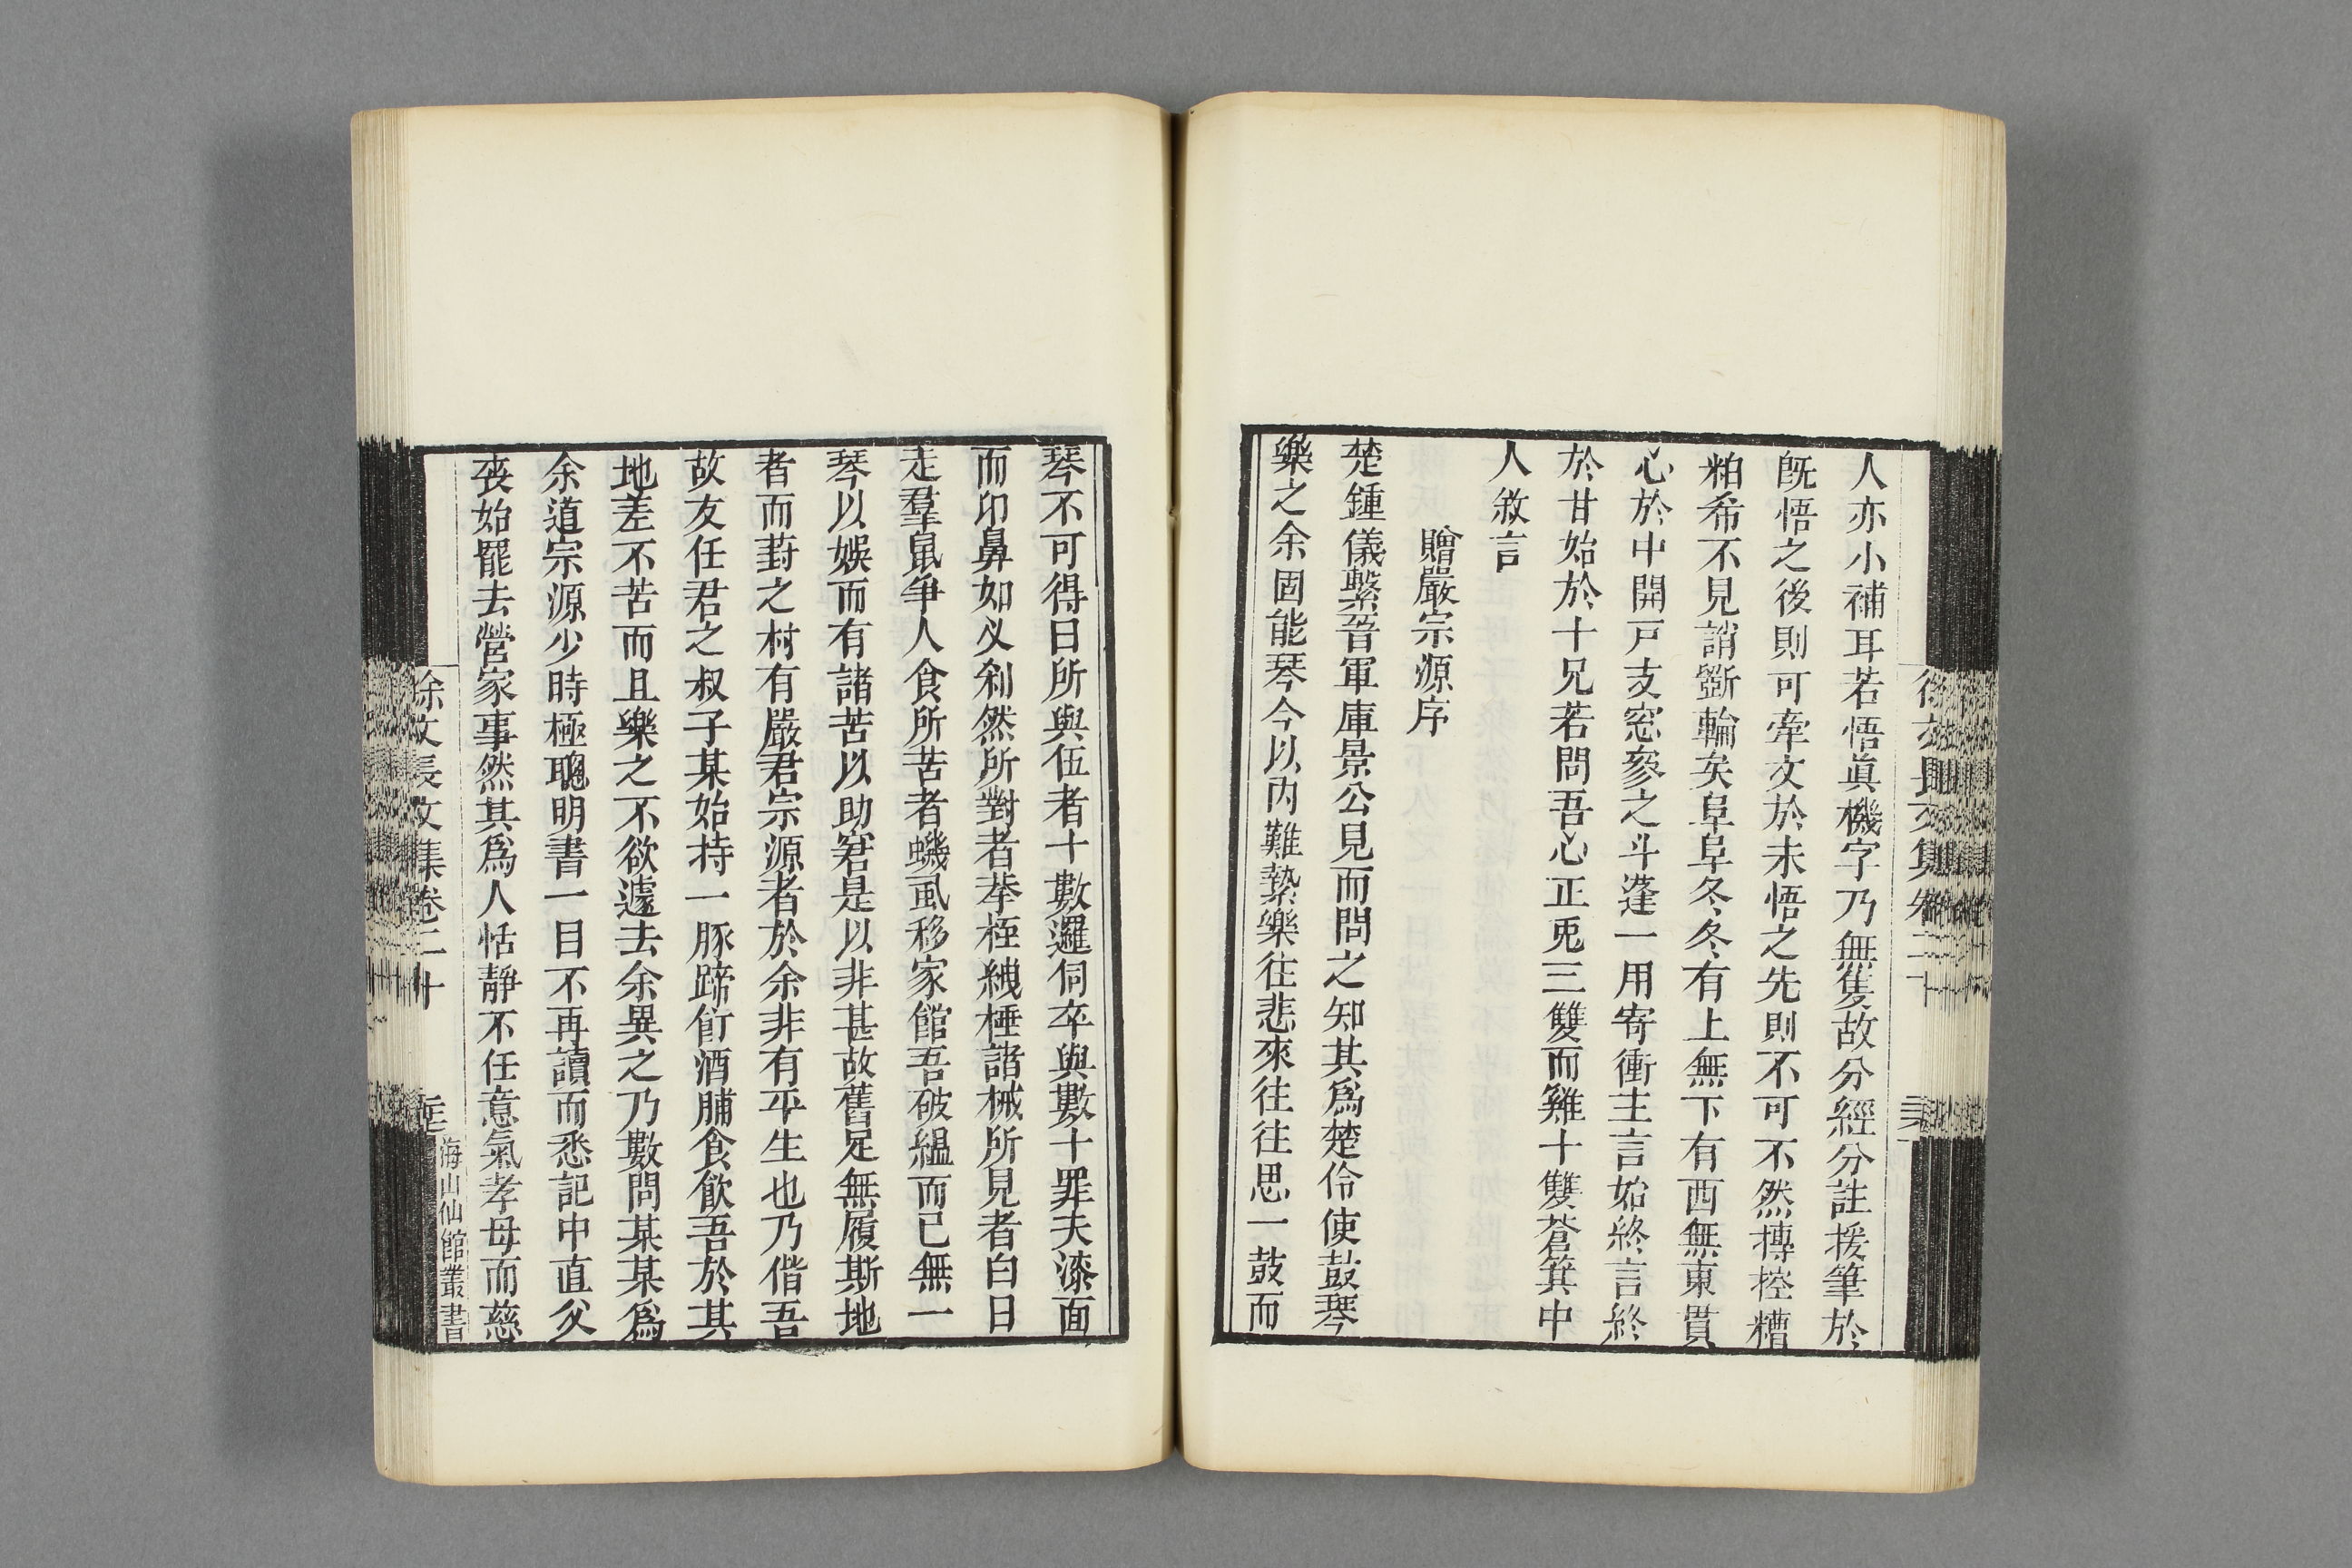 人亦小補耳若悟眞機字乃無隻故分經分註援筆於
旣悟之後則可牽文於未悟之先則不可不然摶控糟
粕希不見誚斵輪矣阜阜冬冬有上無下有西無東貫
心於中開戸支窓叅之斗蓬一用寄衝主言始終言終
於甘始於十兄若問吾心正兎三雙而雞十雙蒼箕中
人敘言
贈嚴宗源序
楚鍾儀繫晉軍庫景公見而問之知其爲楚伶使鼓琴
樂之余固能琴今以内難縶樂往悲來往往思一鼓而
琴不可得日所與伍者十數邏伺卒與數十罪夫漆面
而印鼻如必刹然所對者拲桎絏棰諸械所見者白日
走羣鼠争人食所苦者蟣虱移家館吾破縕而已無一
琴以娛而有諸苦以助窘是以非甚故舊足無履斯地
者而葑之村有嚴君宗源者於余非有平生也乃偕吾
故友任君之叔子某始持一豚蹄俻酒脯食飮吾於其
地差不苦而且樂之不欲遽去余異之乃數問某某爲
余道宗源少時極聰明書一目不再讀而悉記中直父
喪始罷去營家事然其爲人恬靜不任意氣孝母而慈
徐文長文集卷二十
海山仙館叢書